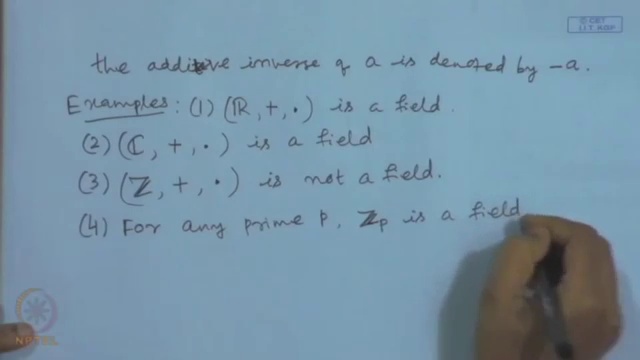 © CET
I.I.T. KGP
the additive inverse of a is denoted by -a.
Examples: (1) (ℝ, +, ·) is a field.
(2) (ℂ, +, ·) is a field
(3) (ℤ, +, ·) is not a field.
(4) For any prime p, ℤp is a field
NPTEL